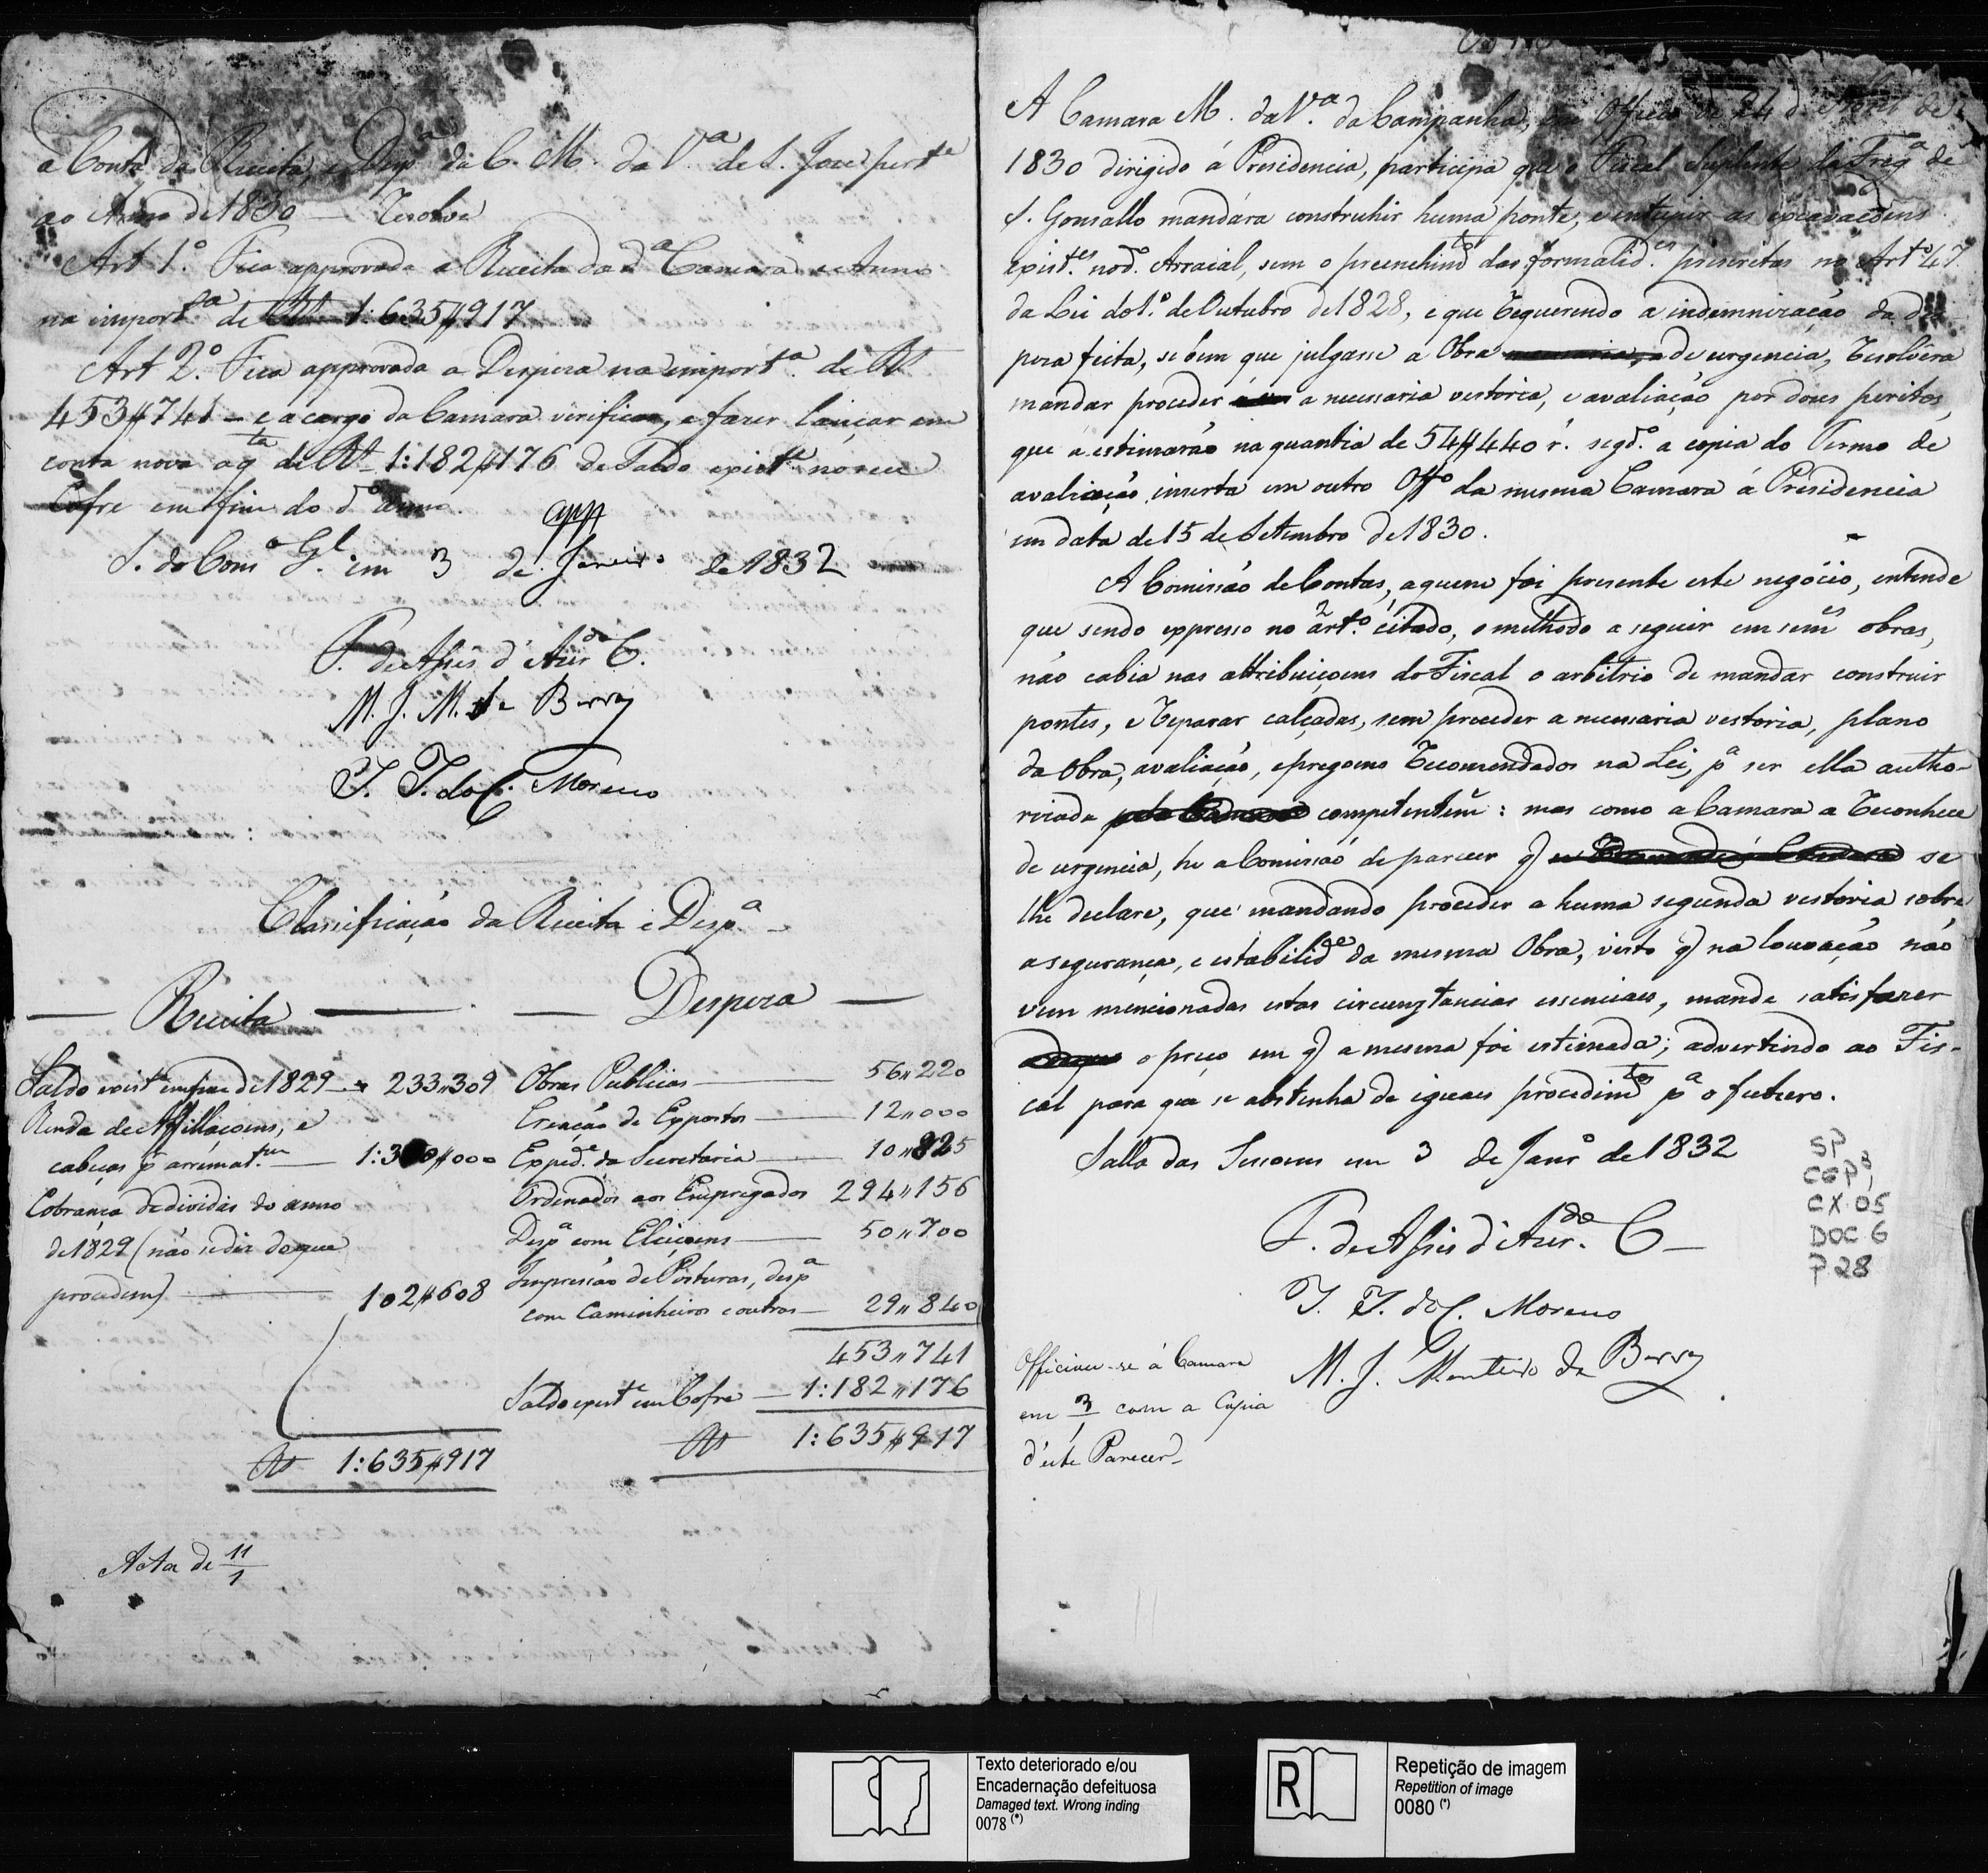 a Conta da Receita, e Desp.ª da C. M. da V.ª de S. Joze pert.e
ao Anno de 1830 — Resolve
Art 1.º Fica approvada a Receita da d.ª Camara e Anno
na import.ª de Rs 1:635$917
Art 2.º Fica approvada a Despeza na import.ª de Rs
453$741 — e a cargo da Camara verificar, e fazer lançar em
conta nova a q.ta de Rs 1:182$176 de Saldo exist.e no seu
Cofre em fim do d.º anno.
app
S. do Cons.º G.l em 3 de Janeiro de 1832
F. de Assis d'Azer.do C.
M. J. M. de Barros
J. J. do C. Moreno
Classificação da Receita e Desp.ª
Receita
Saldo exist.e em fim de 1829 — 233"309
Renda de Affillaçoens, e
cabeças p.r arrimat.m — 1:300$000
Cobrança de dividas do anno
de 1829 (não se diz do que
procedem) — 102$608
Rs 1:635$917
Despeza
Obras Publicas — 56"220
Creação de Expostos — 12"000
Exped.e da Secretaria — 10"825
Ordenados aos Empregados 294"156
Desp.ª com Eleiçoens — 50"700
Impressão de Posturas, desp.ª
com Caminheiros e outras — 29"840
453"741
Saldo exist.e em Cofre — 1:182"176
Rs 1:635$917
Acta de 11/1
A Camara M. da V.ª da Campanha, em Officio de 24 de de
1830 dirigido á Presidencia, participa que o Fiscal Suplente da Freg.ª de
S. Gonsallo mandára construhir huma ponte, e entupir as excavaçoens
exist.es no d.º Arraial, sem o preenchim.to das formalid.es prescritas no Art.º 47
da Lei do 1.º de Outubro de 1828, e que requerendo a indemnização da des
peza feita, se bem que julgasse a Obra de urgencia, resolvêra
mandar proceder a necessaria vestoria, e avaliação por dous peritos,
que a estimarão na quantia de 54$440 r.s segd.º a copia do Termo de
avaliação inserta em outro Off.º da mesma Camara á Presidencia
em data de 15 de Setembro de 1830.
A Comissão de Contas, a quem foi presente este negócio, entende
que sendo expresso no art.º 2 citado, o methodo a seguir em sem.es obras,
não cabia nas attribuiçoens do Fiscal o arbitrio de mandar construir
pontes, e reparar calçadas, sem preceder a necessaria vestoria, plano
da Obra, avaliação, e pregoens recomendados na Lei, p.ª ser ella autho-
rizada competentem.e: mas como a Camara a reconhece
de urgencia, he a Comissão de parecer q se
lhe declare, que mandando proceder a huma segunda vestoria sobre
a segurança, e estabilid.e da mesma Obra, visto q na louvação não
vem mencionadas estas circunstancias essenciaes, mande satisfazer
o preço em q a mesma foi estimada; advertindo ao Fis-
cal para que se abstenha de iguaes procedim.tos p.ª o futuro.
Salla das Sessoens em 3 de Janr.º de 1832
F. de Assis d'Azer.do C—
J. J. do C. Moreno
M. J. Monteiro de Barros
Officiou-se á Camara
em 3/1 com a Copia
d'este Parecer
SP
CGP 3,
CX. 05
DOC 6
P. 28
Texto deteriorado e/ou
Encadernação defeituosa
Damaged text. Wrong inding
0078 (*)
R
Repetição de imagem
Repetition of image
0080 (*)